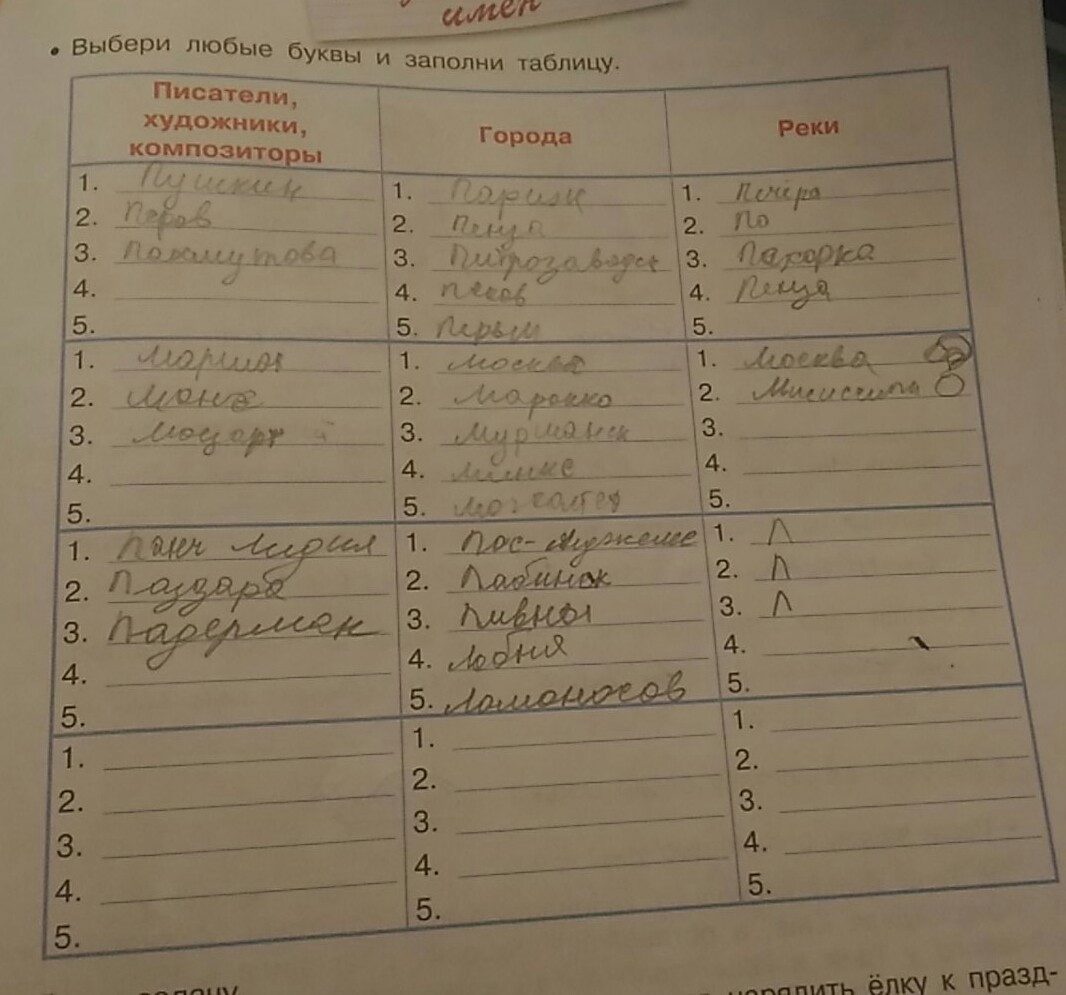 имен
• Выбери любые буквы и заполни таблицу.
Писатели, художники, композиторы
Города
Реки
1. Пушкин
2. Перов
3. Пахмутова
4.
5.
1. Париж
2. Пенза
3. Питрозаводск
4. Псков
5. Перьм
1. Печёра
2. По
3. Пехорка
4. Пенза
5.
1. Маршак
2. Манэ
3. Моцарт
4.
5.
1. Москва
2. Марокко
3. Мурманск
4. Минкс
5.
1. Москва
2. Мисиссипи
3.
4.
5.
1. Ланч Лидия
2. Лаздара
3. Ладерман
4.
5.
1. Лос-Анджелес
2. Лабинск
3. Ливны
4. Лобня
5. Ламоносов
1. Л
2. Л
3. Л
4.
5.
1.
2.
3.
4.
5.
1.
2.
3.
4.
5.
1.
2.
3.
4.
5.
ёлку к празд-